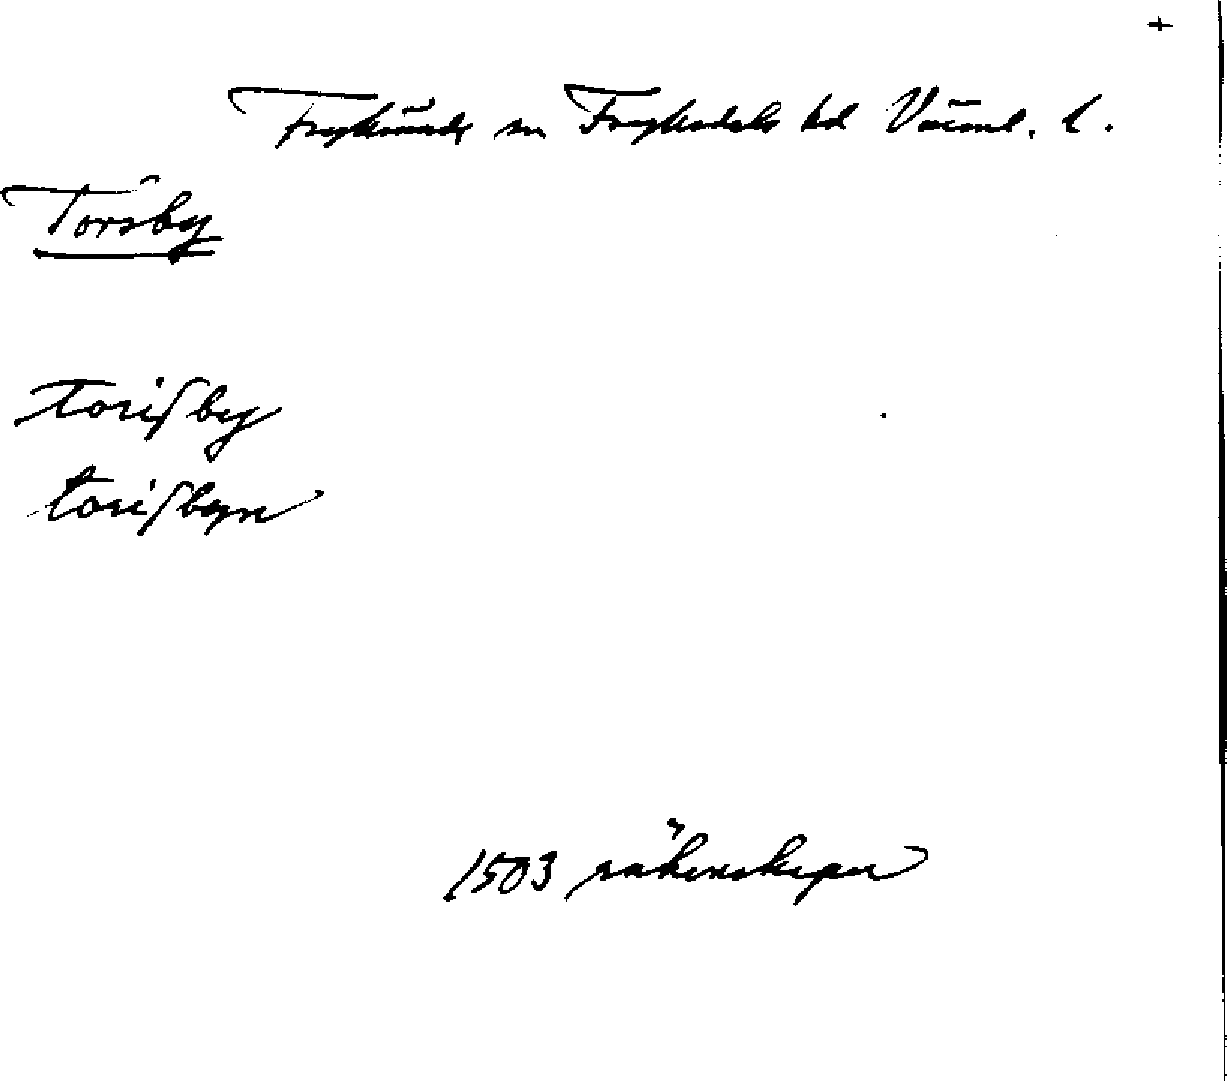 +
Fryksände sn Fryksdals hd Värml. l.
Torsby
torisby
torisbyn
1503 räkenskaper